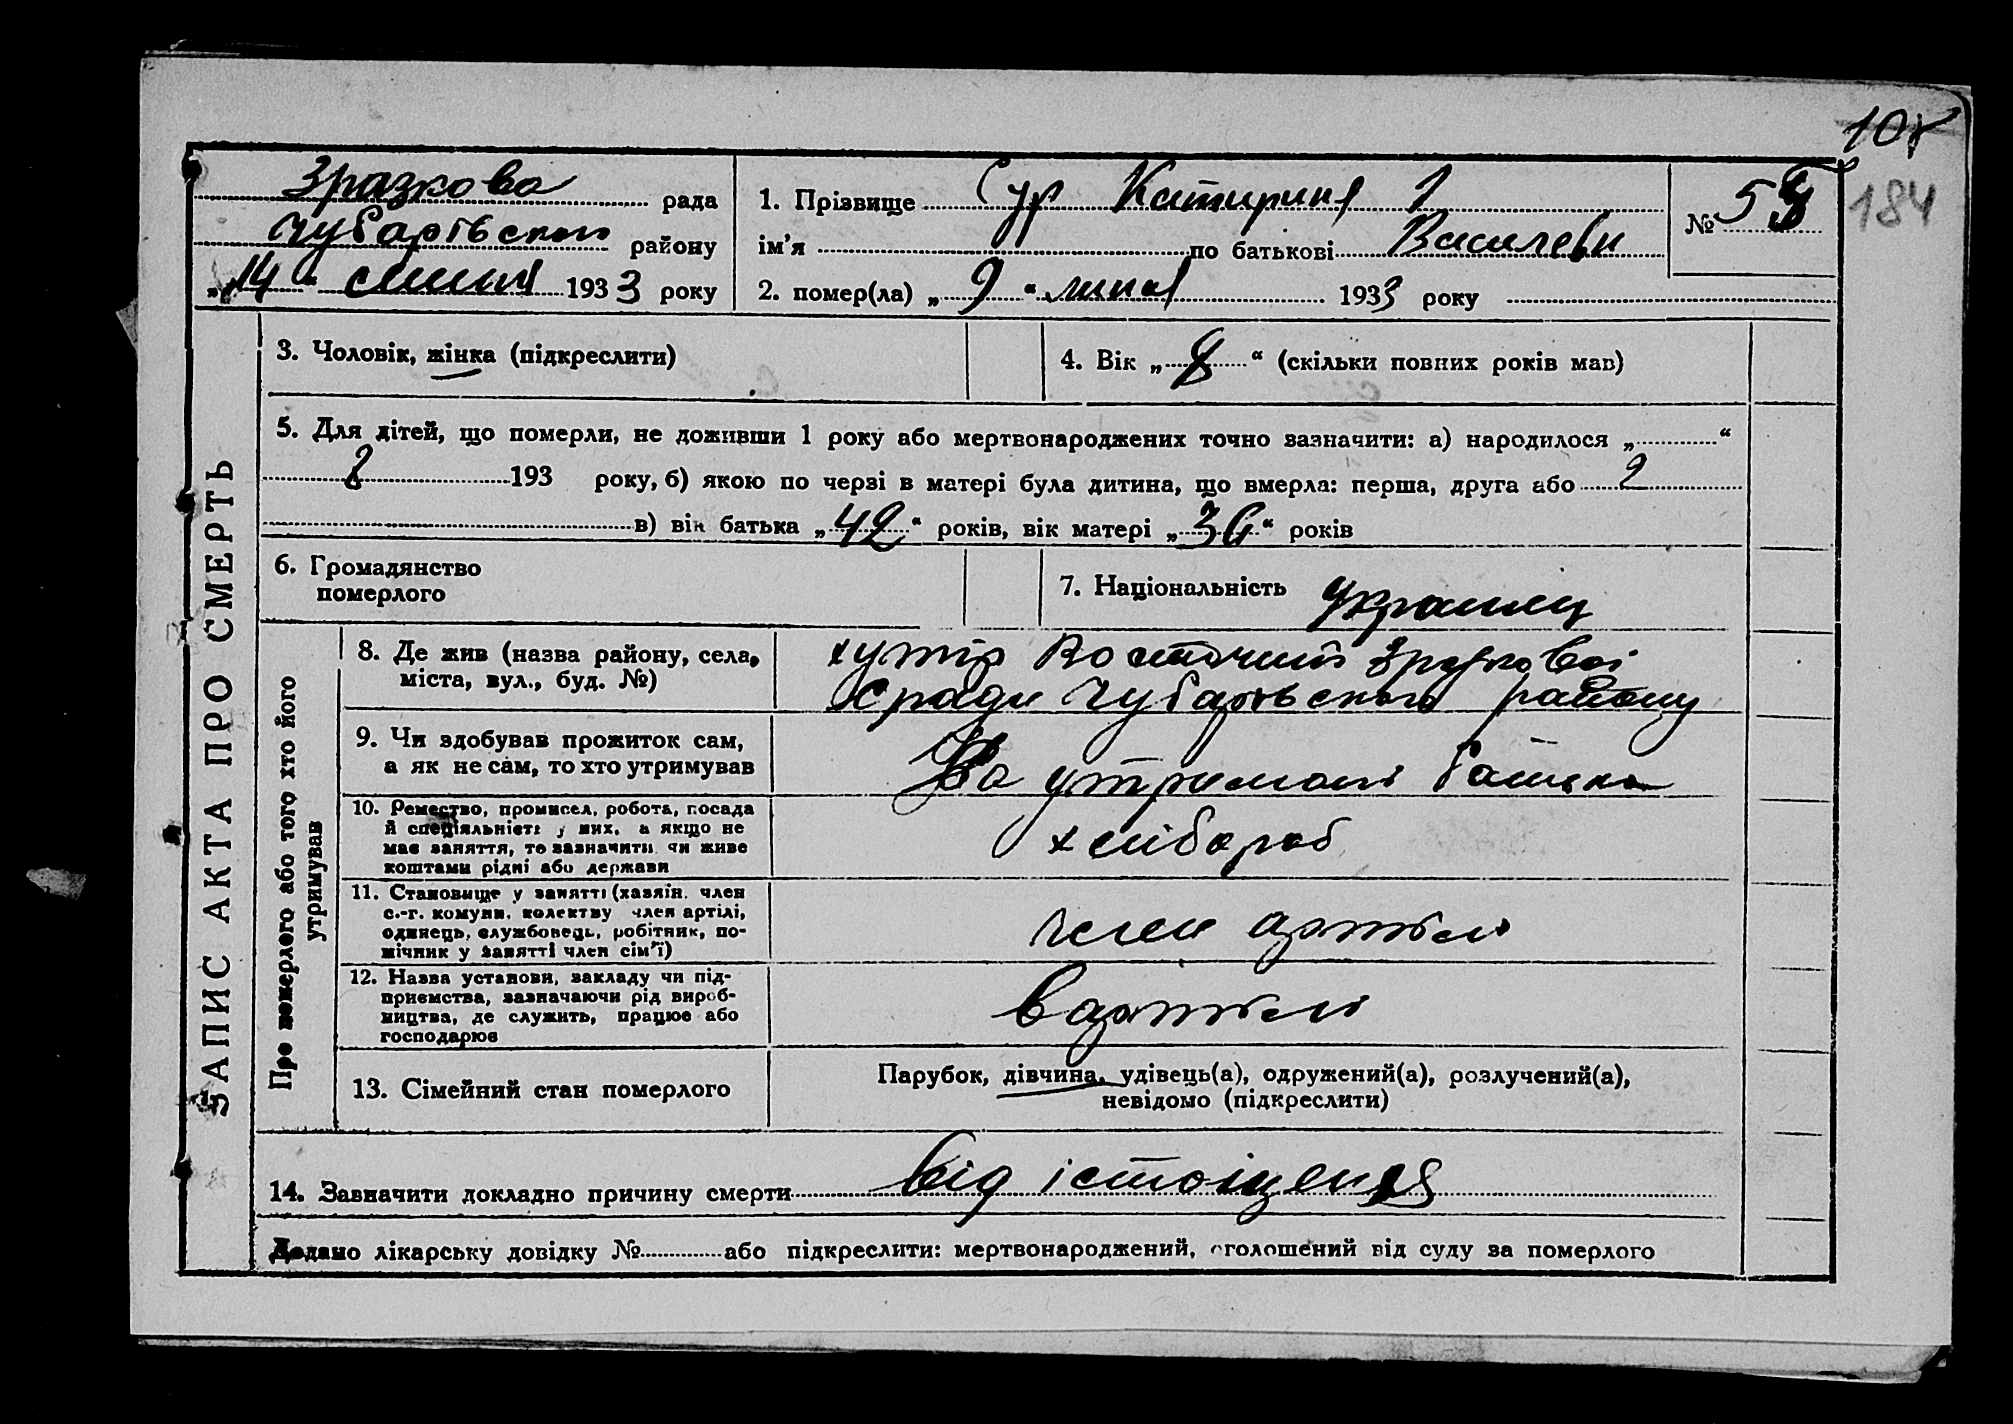 10
184
Зразкова рада
Чубарівського району
„14“ липня 1933 року
1. Прізвище Сур Катирина
ім'я по батькові Василеви
2. помер(ла) „9“ липня 1933 року
№ 58
ЗАПИС АКТА ПРО СМЕРТЬ
3. Чоловік, жінка (підкреслити)
4. Вік „8“ (скільки повних років мав)
5. Для дітей, що померли, не доживши 1 року або мертвонароджених точно зазначити: а) народилося „ “
193 року, б) якою по черзі в матері була дитина, що вмерла: перша, друга або 2
в) вік батька „42“ років, вік матері „36“ років
6. Громадянство
померлого
7. Національність українец
Про померлого або того хто його
утримував
8. Де жив (назва району, села,
міста, вул., буд. №)
хутір Восточний Зразковоі
с ради Чубарівського району
9. Чи здобував прожиток сам,
а як не сам, то хто утримував
На утримані батька
10. Ремество, промисел, робота, посада
й спеціяльність у них, а якщо не
має заняття, то зазначити чи живе
коштами рідні або держави
хлібароб
11. Становище у занятті (хазяїн, член
с.-г. комуни, колективу член артілі,
одинець, службовець, робітник, по-
мічник у занятті член сім'ї)
член артілі
12. Назва установи, закладу чи під-
приємства, зазначаючи рід вироб-
ництва, де служить, працює або
господарює
в артілі
13. Сімейний стан померлого
Парубок, дівчина, удівець(а), одружений(а), розлучений(а),
невідомо (підкреслити)
14. Зазначити докладно причину смерти від істощення
Додано лікарську довідку № або підкреслити: мертвонароджений, оголошений від суду за померлого